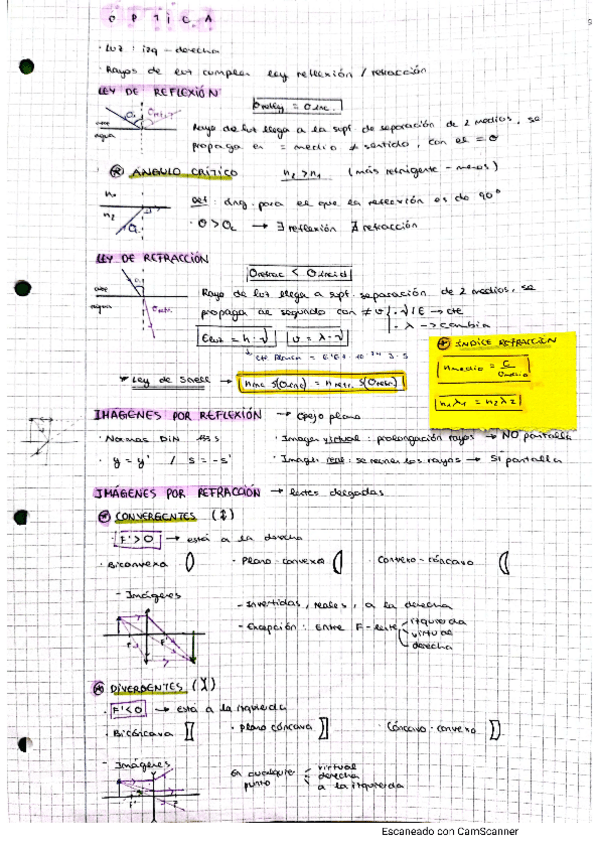 OPTICA
· Luz : izq - derecha
· Rayos de luz cumplen ley reflexión / refracción
LEY DE REFLEXIÓN
θreflej = θinc.
aire
agua
Rayo de luz llega a la supf. de separación de 2 medios, se
propaga en = medio ≠ sentido, con el = θ
* ÁNGULO CRÍTICO n₂ > n₁ (más refringente - menos)
n₁
n₂
Def : áng. para el que la refracción es de 90°
· θ > θL → ∃ reflexión ∄ refracción
LEY DE REFRACCIÓN
θrefrac < θincid
aire
agua
Rayo de luz llega a supf. separación de 2 medios, se
propaga al segundo con ≠ v
· ν / E → cte
· λ → cambia
Eluz = h · ν
v = λ · ν
↓ cte Planck = 6'63 · 10⁻³⁴ J · s
* ÍNDICE REFRACCIÓN
nmedio = c / vmedio
n₁λ₁ = n₂λ₂
* Ley de Snell → ninc S(θinc) = nrefr. S(θrefr)
IMÁGENES POR REFLEXIÓN → espejo plano
· Normas DIN
· y = y' / s = -s'
· Imagen virtual : prolongación rayos → NO pantalla
· Imagen real : se reúnen los rayos → SÍ pantalla
IMÁGENES POR REFRACCIÓN → lentes delgadas
* CONVERGENTES (↕)
· F' > 0 → está a la derecha
· Biconvexa
· Plano-convexa
· Convexo-cóncavo
- Imágenes
- Invertidas, reales, a la derecha
- Excepción : Entre F - lente
izquierda
virtual
derecha
* DIVERGENTES
· F' < 0 → está a la izquierda
· Bicóncava
· Plano cóncava
· Cóncavo-convexo
- Imágenes
En cualquier punto
virtual
derecha
a la izquierda
Escaneado con CamScanner